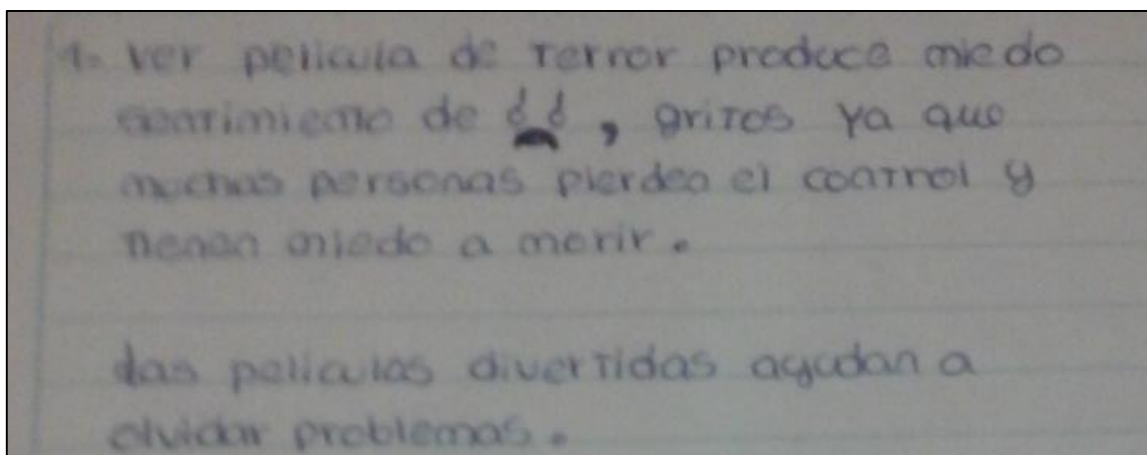 1- ver pelicula de Terror produce miedo
sentimiento de , gritos ya que
muchas personas pierden el control y
tienen miedo a morir.
las peliculas divertidas ayudan a
olvidar problemas.